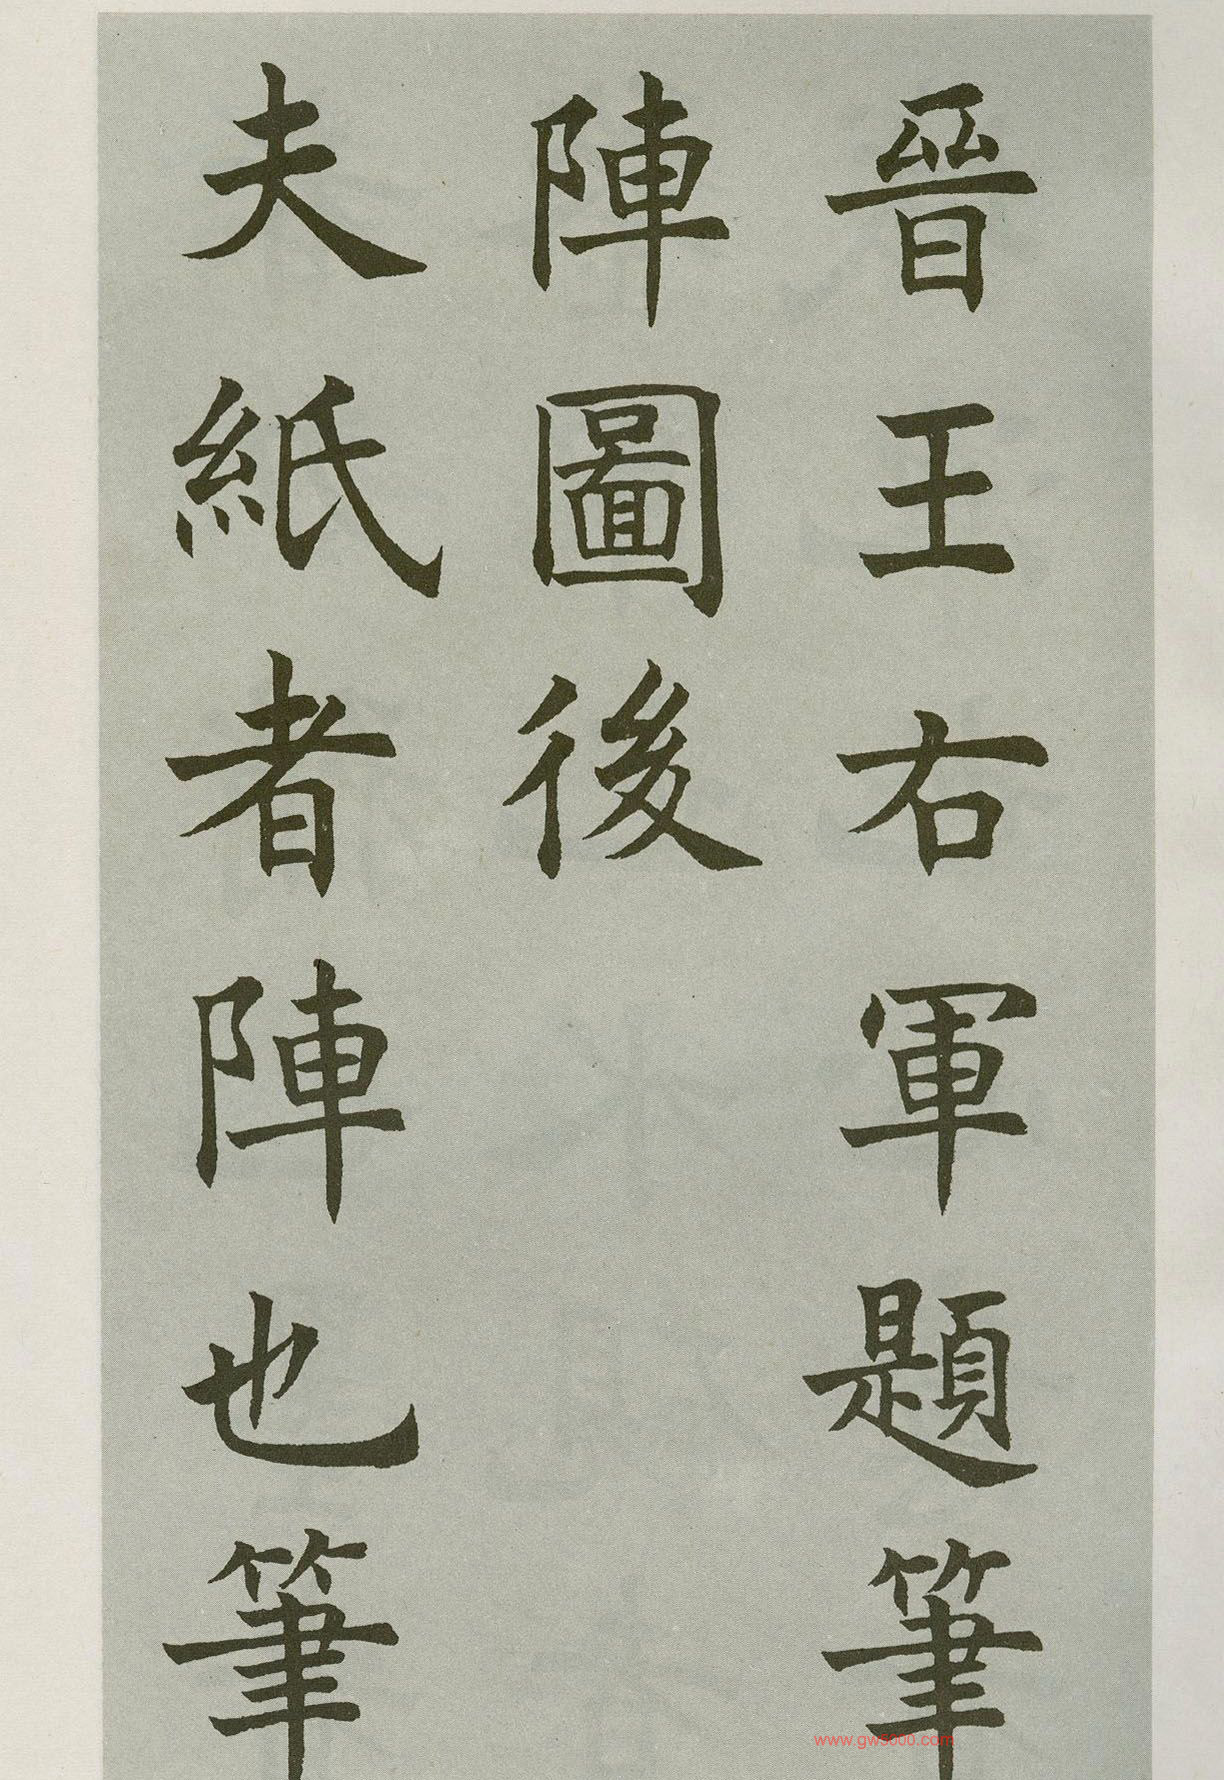 晉王右軍題筆
陣圖後
夫紙者陣也筆
www.gw5000.com